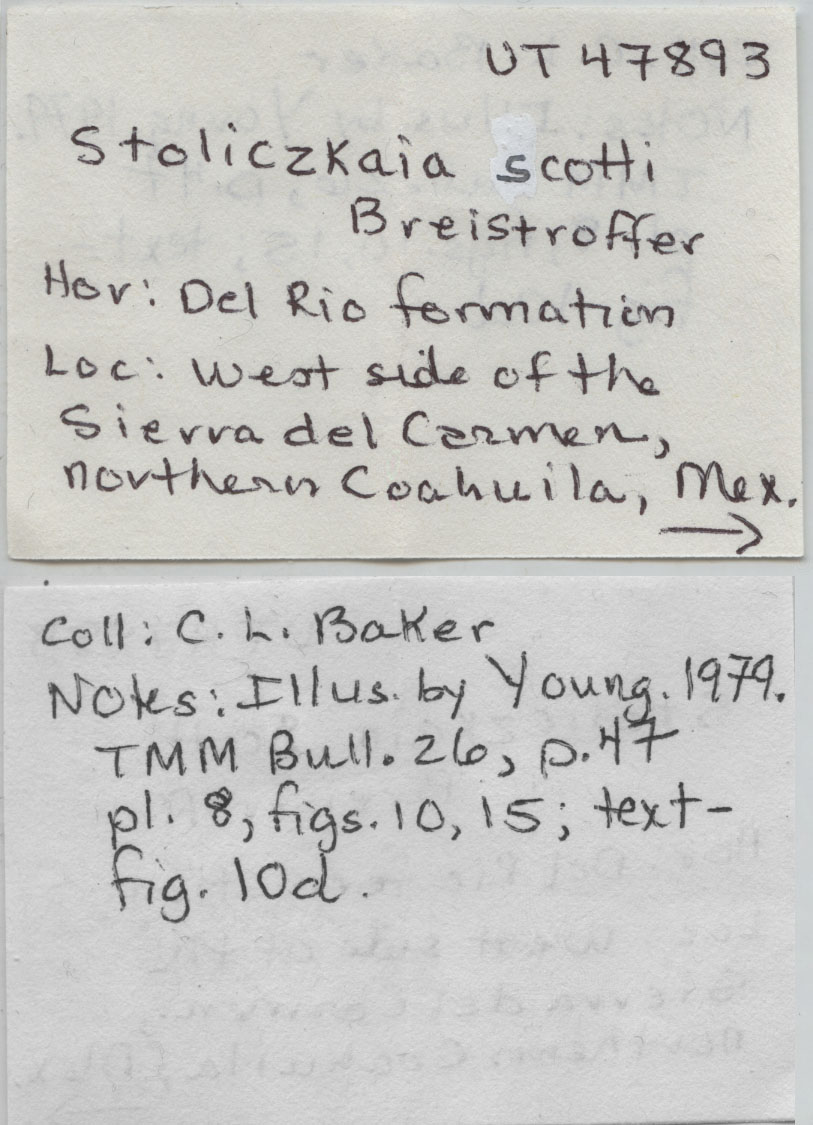 UT 47893
Stoliczkaia scotti
Breistroffer
Hor: Del Rio formation
Loc: West side of the
Sierra del Carmen,
northern Coahuila, Mex.
→
Coll: C. L. Baker
Notes: Illus. by Young. 1979.
TMM Bull. 26, p. 47
pl. 8, figs. 10, 15; text-
fig. 10d.